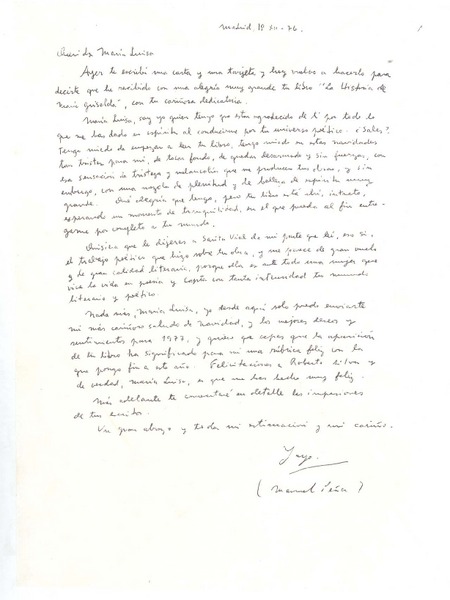 Madrid, 18 XII - 76.
Querida María Luisa
Ayer te escribí una carta y una tarjeta y hoy vuelvo a hacerlo para
decirte que he recibido con una alegría muy grande tu libro "La Historia de
María Griselda", con tu cariñosa dedicatoria.
María Luisa, soy yo quien tengo que estar agradecido de ti por todo lo
que me has dado en espíritu al conducirme por tu universo poético. ¿Sabes?
Tengo miedo de empezar a leer tu libro, tengo miedo en estas navidades
tan tristes para mí, de tocar fondo, de quedar desarmado y sin fuerzas, con
esa sensación de tristeza y melancolía que me producen tus obras, y sin
embargo, con una mezcla de plenitud y de belleza de espíritu muy
grande. Qué alegría que tengo, pero tu libro está ahí, intacto,
esperando un momento de tranquilidad, en el que pueda al fin entre-
garme por completo a tu mundo.
Quisiera que le dijeras a Sarita Vial de mi parte que leí, eso sí,
el trabajo poético que hizo sobre tu obra, y me parece de gran vuelo
y de gran calidad literaria, porque ella es ante todo una mujer que
vive la vida en poesía y captó con tanta intensidad tu mundo
literario y poético.
Nada más, María Luisa, yo desde aquí solo puedo enviarte
mi más cariñoso saludo de navidad, y los mejores deseos y
sentimientos para 1977, y quiero que sepas que la aparición
de tu libro ha significado para mí una rúbrica feliz con la
que pongo fin a este año. Felicitaciones a Roberto Silva y
de verdad, María Luisa, es que me has hecho muy feliz.
Más adelante te comentaré en detalle las impresiones
de tus escritos.
Un gran abrazo y toda mi estimación y mi cariño.
(Manuel Peña)